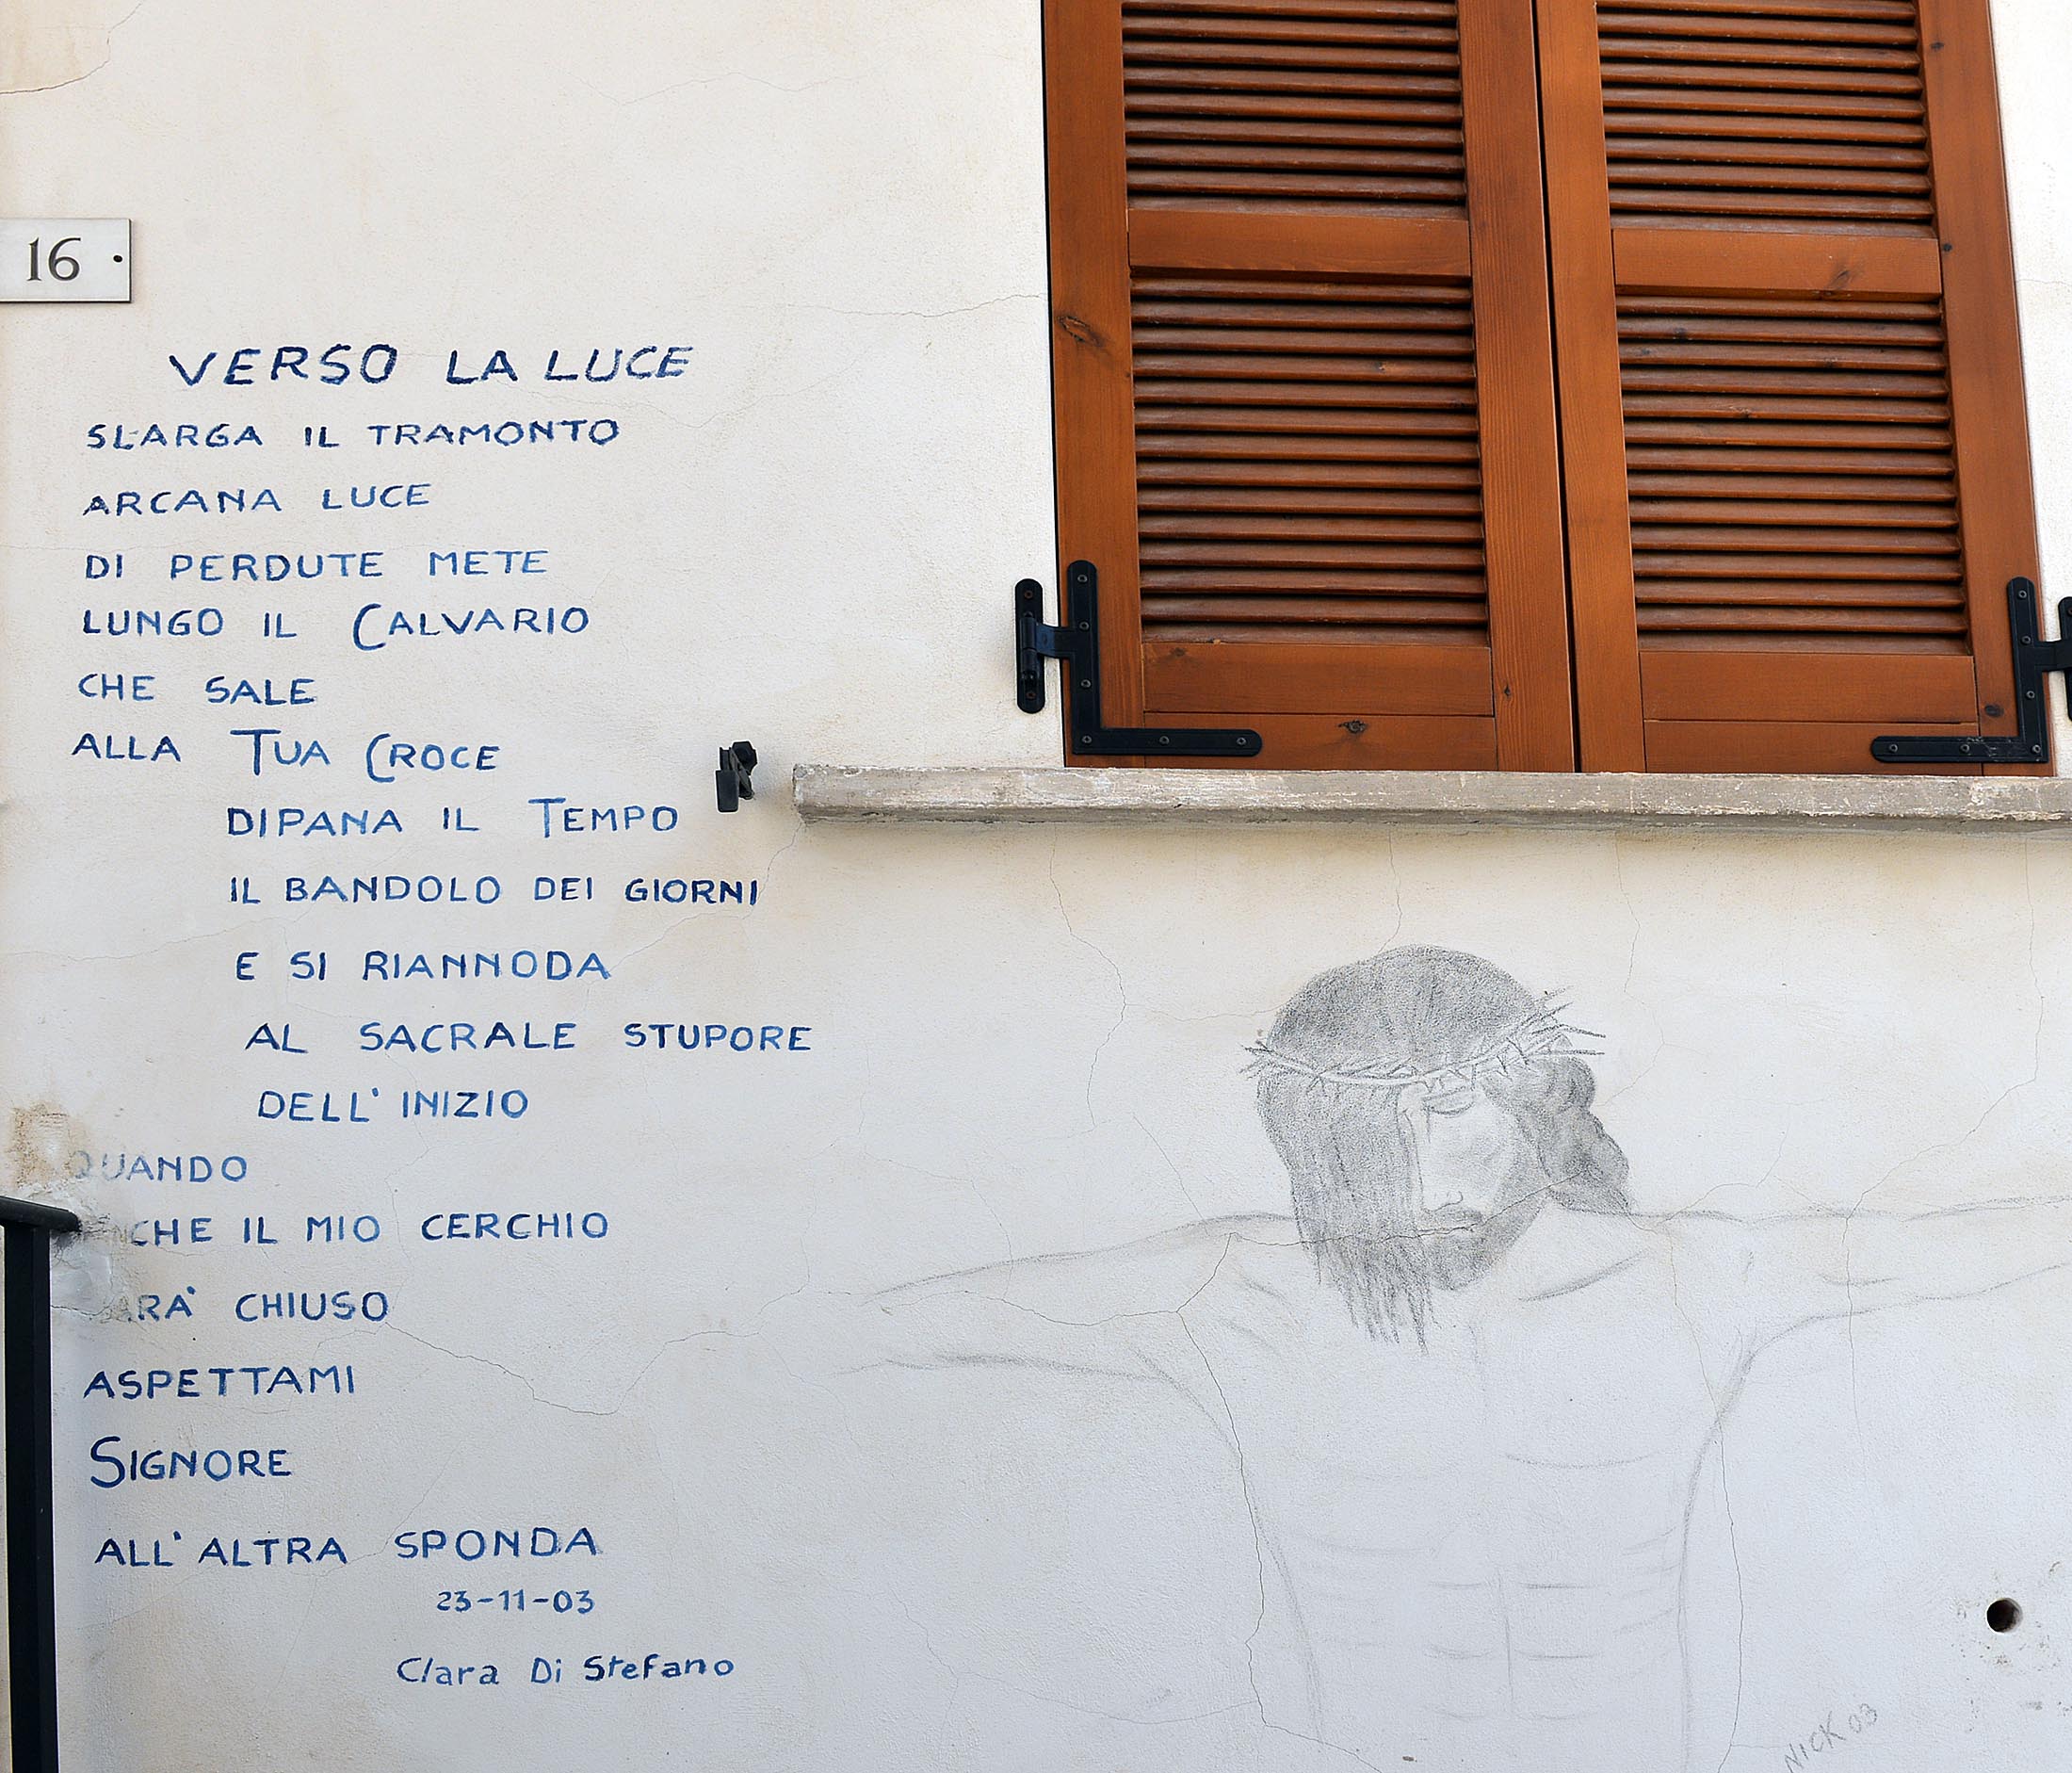 16
VERSO LA LUCE
SLARGA IL TRAMONTO
ARCANA LUCE
DI PERDUTE METE
LUNGO IL CALVARIO
CHE SALE
ALLA TUA CROCE
DIPANA IL TEMPO
IL BANDOLO DEI GIORNI
E SI RIANNODA
AL SACRALE STUPORE
DELL'INIZIO
QUANDO
IL MIO CERCHIO
CHIUSO
ASPETTAMI
SIGNORE
ALL'ALTRA SPONDA
23-11-03
Clara Di Stefano
NICK 03